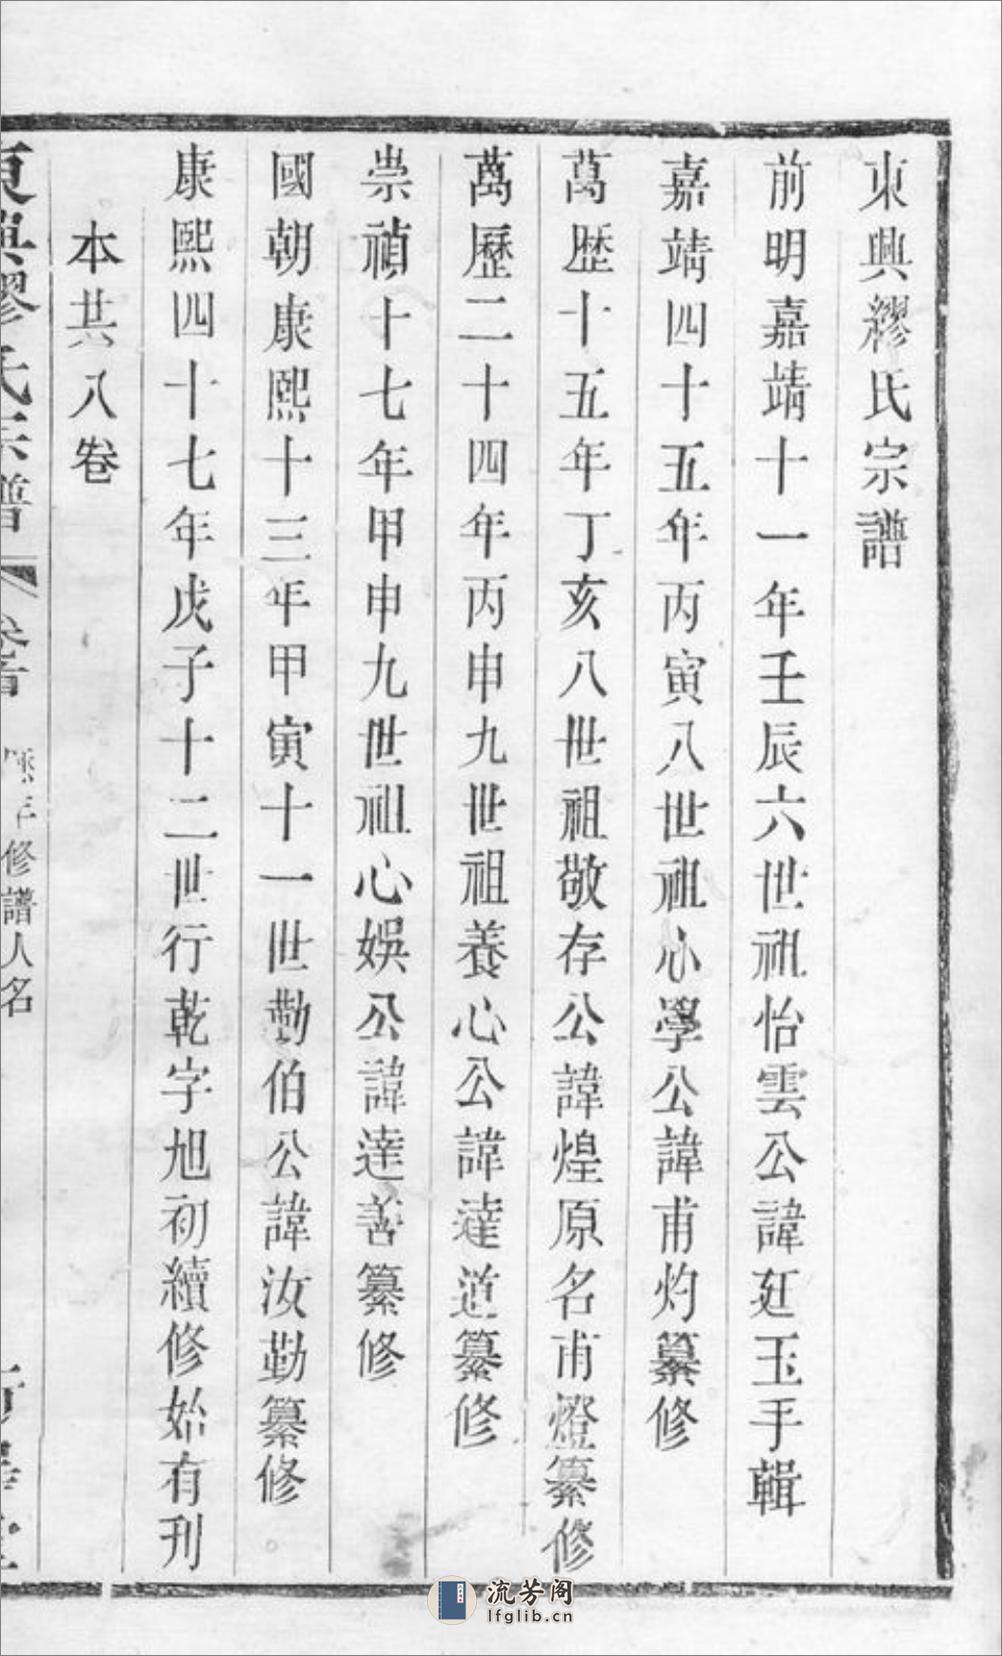 東興繆氏宗譜
前明嘉靖十一年壬辰六世祖怡雲公諱廷玉手輯
嘉靖四十五年丙寅八世祖心學公諱甫灼纂修
萬歷十五年丁亥八世祖敬存公諱煌原名甫燈纂修
萬歷二十四年丙申九世祖養心公諱達道纂修
崇禎十七年甲申九世祖心娛公諱達善纂修
國朝康熙十三年甲寅十一世勷伯公諱汝勤纂修
康熙四十七年戊子十二世行乾字旭初續修始有刊
本共八卷
東興繆氏宗譜 卷首 修譜人名
流芳阁
lfglib.cn